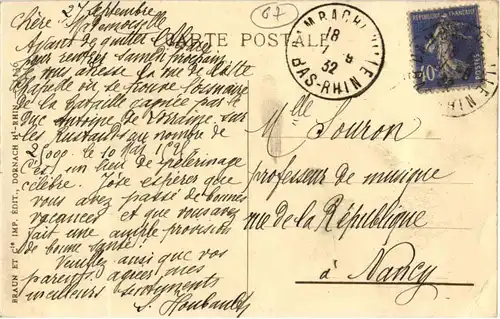 27 Septembre
67
CARTE POSTALE
Chère Mademoiselle
Avant de quitter
pour rentrer Samedi prochain
je vous adresse la vue de cette
Chapelle où se trouve
de la bataille gagnée par le
Duc Antoine de Lorraine, sur
les Rustauds au nombre de
le 10 Mai
C'est un lieu de pèlerinage
célèbre. J'ose espérer que
vous avez passé de bonnes
vacances et que vous avez
fait une autre provision
de bonne santé!
Veuillez ainsi que vos
parents agréer mes
meilleurs sentiments
BRAUN ET Cie IMP. ÉDIT., DORNACH
18
32
BAS-RHIN
RÉPUBLIQUE FRANÇAISE
40c
POSTES
Mlle Souron
professeur de musique
rue de la République
à Nancy